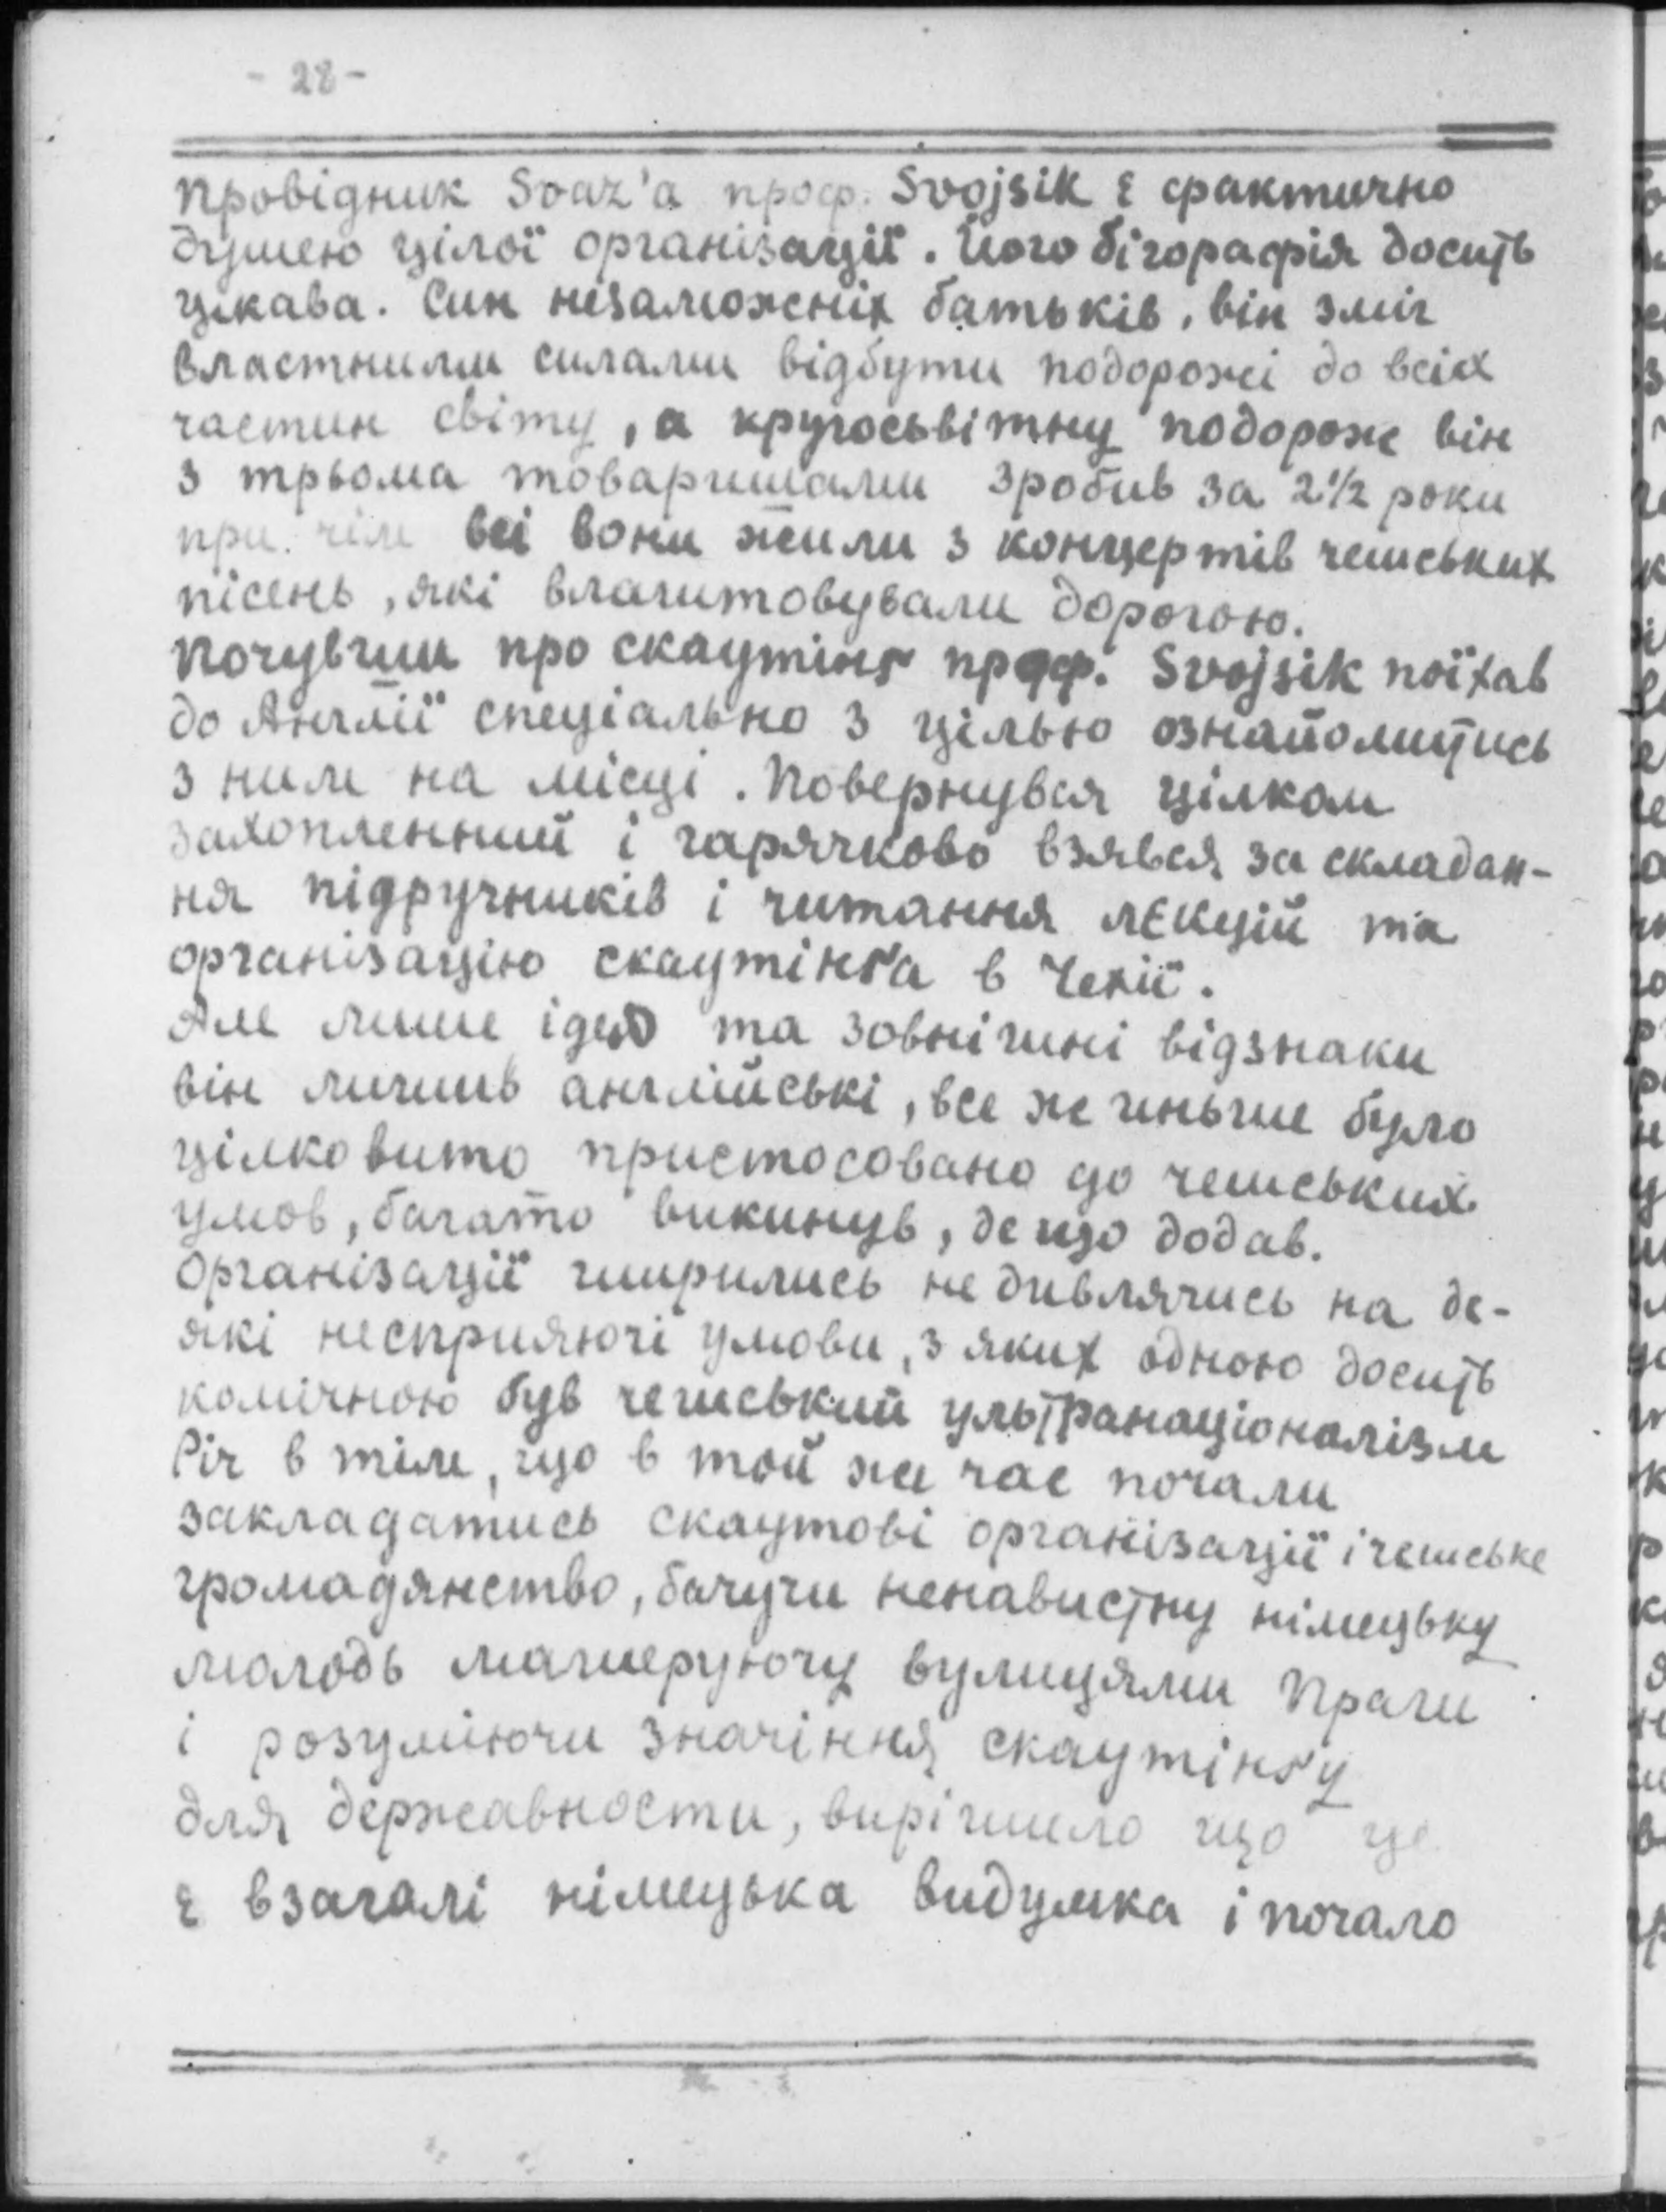 - 28 -
Провідник Svaz'а проф. Svojsik є фактично
душею цілої організації. Його бігорафія досить
цікава. Син незаможніх батьків, він зміг
властними силами відбути подорожі до всіх
частин світу, а кругосьвітну подорож він
з трьома товаришами зробив за 2½ роки
при чім всі вони жили з концертів чешських
пісень, які влаштовували дорогою.
Почувши про скаутінґ проф. Svojsik поїхав
до Англії спеціально з цільью ознайомитись
з ним на місці. Повернувся цілком
захопленний і гарячково взявся за складан-
ня підручників і читання лєкцій та
організацію скаутінґа в Чехії.
Але лише ідею та зовнішні відзнаки
він лишив англійські, все же иньше було
цілковито пристосовано до чешських
умов, багато викинув, де що додав.
Організації ширились не дивлячись на де-
які несприяючі умови, з яких одною досить
комічною був чешський ультранаціоналізм
Річ в тім, що в той же час почали
закладатись скаутові організації і чешське
громадянство, бачучи ненавистну німецьку
молодь машеруючу вулицями Праги
і розуміючи значіння скаутінґу
для державности, вирішило що це
є взагалі німецька видумка і почало